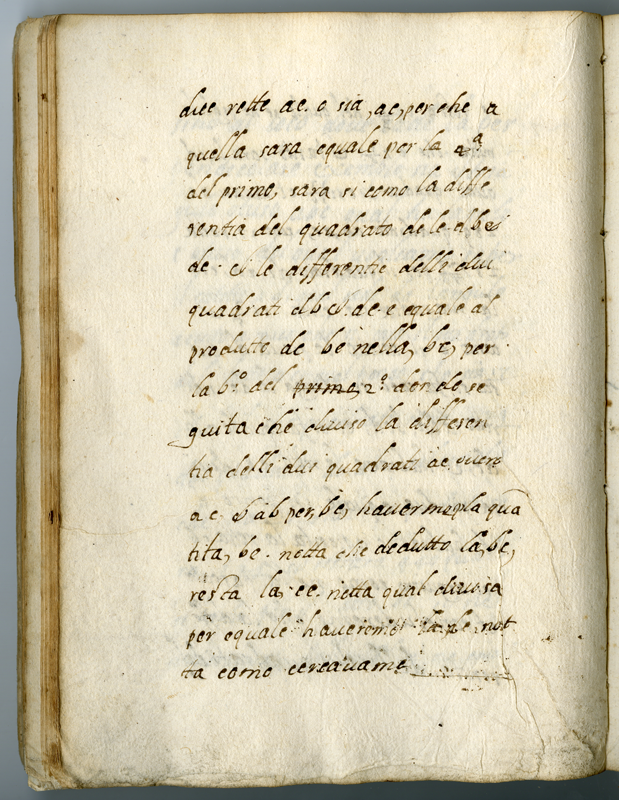 due rette ae. o sia, ac, perche a
quella sara equale per la 4.ª
del primo, sara si como la diffe
rentia del quadrato de le db et
de. & le differentie delli dui
quadrati db & de. e equale al
produtto de be nella, bc, per
la 6.º del primo, 2.º don de se
guita che diuiso la differen
tia delli dui quadrati ae. ouero
ac. & ab per, bc, haueremo la quā
tita, be. notta che dedutto la, bc,
resta la, ec. notta qual diuisa
per equale haueremo la not
ta como cercauamo